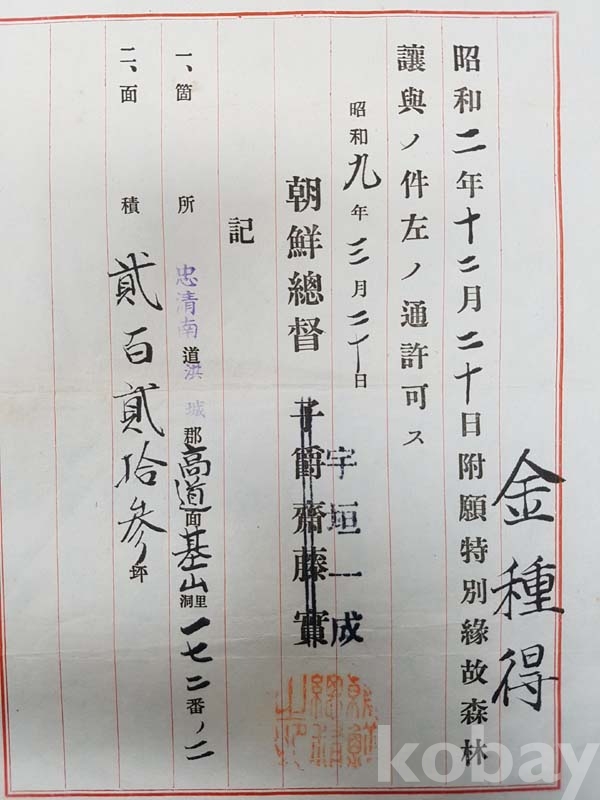 金種得
昭和二年十二月二十日附願特別緣故森林
讓與ノ件左ノ通許可ス
昭和九年三月二十日
朝鮮總督 子爵齋藤實
宇垣一成
記
一、箇所 忠清南道洪城郡高道面基山里洞一七二番ノ二
二、面積 貳百貳拾參坪
朝鮮總督之印
kobay